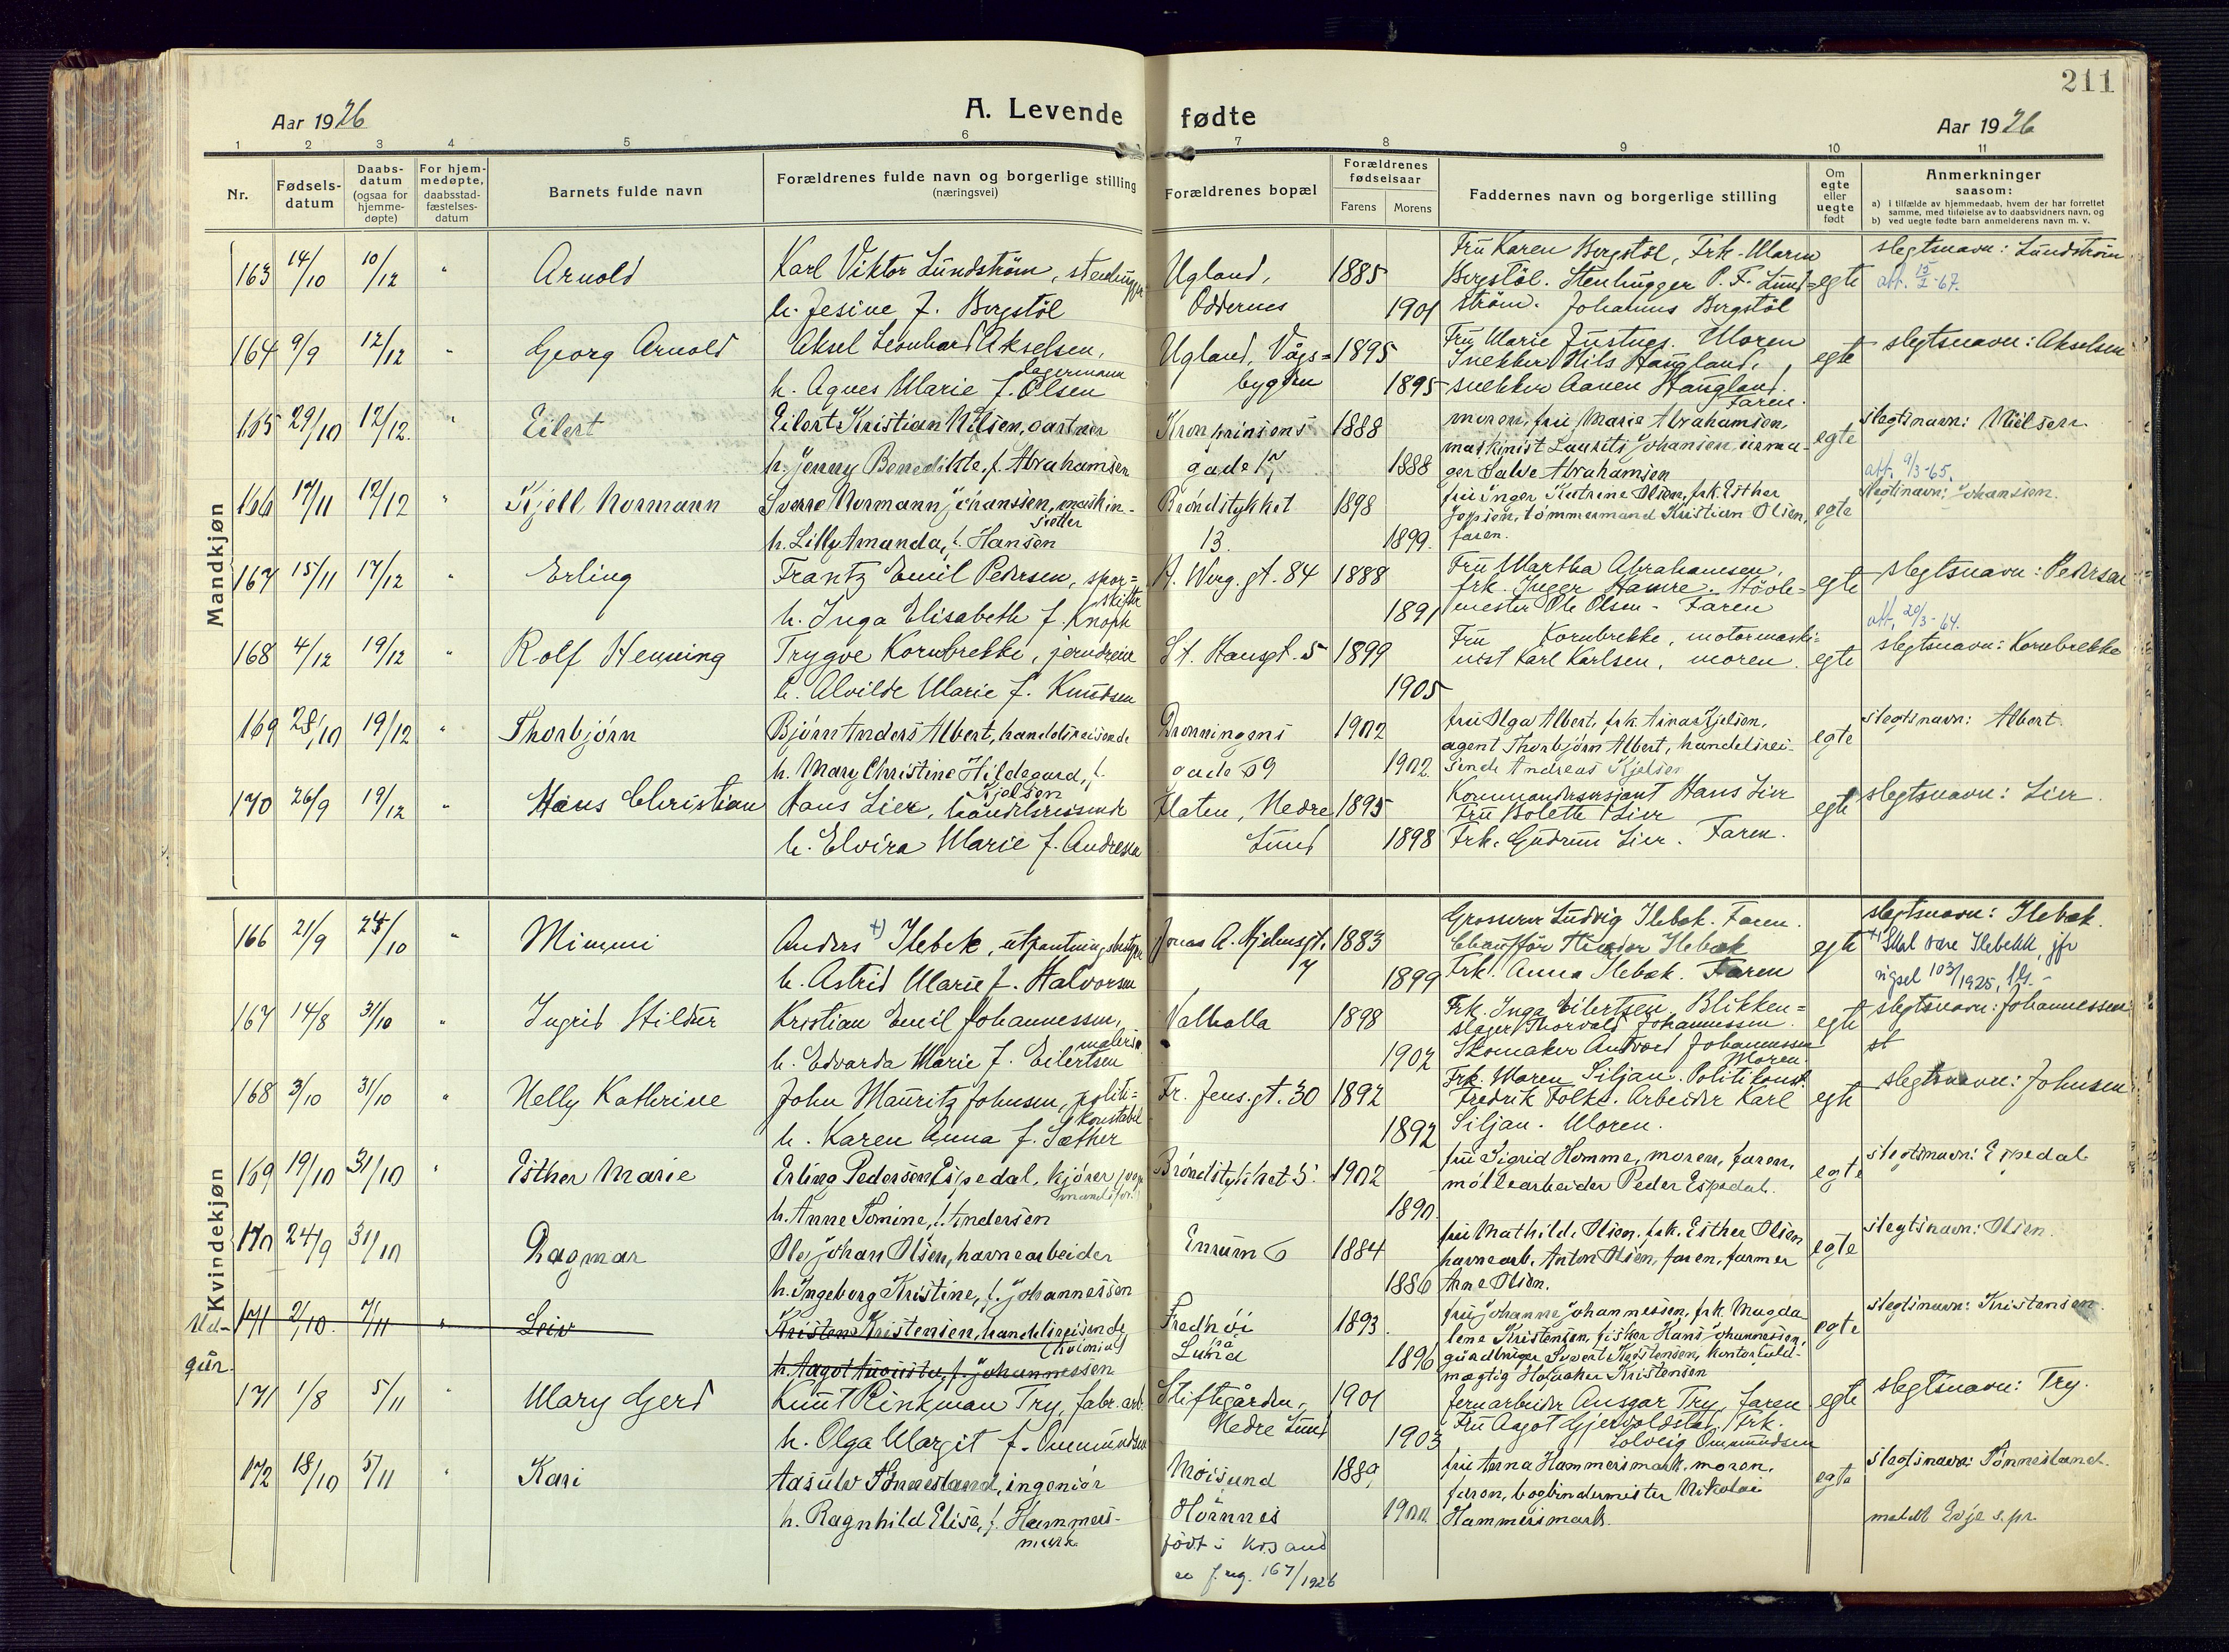 211
Aar 1926
A. Levende fødte
Aar 1926
1 2 3 4 5 6 7 8 9 10 11
Nr.
Fødsels-
datum
Daabs-
datum
(ogsaa for
hjemme-
døpte)
For hjem-
medøpte,
daabsstad-
fæstelses-
datum
Barnets fulde navn
Forældrenes fulde navn og borgerlige stilling
(næringsvei)
Forældrenes bopæl
Forældrenes
fødselsaar
Farens Morens
Faddernes navn og borgerlige stilling
Om
egte
eller
uegte
født
Anmerkninger
saasom:
a) I tilfælde av hjemmedaab, hvem der har forrettet
samme, med tilføielse av to daabsvidners navn, og
b) ved uegte fødte barn anmelderens navn m. v.
Mandkjøn
163 14/10 10/12 " Arnold
Karl Viktor Lundström, stenhugger
h. Jesine f. Bergstöl
Ugland,
Oddernes
1885
1901
Fru Karen Bergstöl, Frk. Maren
Bergstöl. Stenhugger P. F. Lund=
ström. Johannes Bergstöl
egte
slegtsnavn: Lundström
att. 15/2-67.
164 9/9 12/12 " Georg Arnold
Aksel Leonhard Akselsen,
lagermann
h. Agnes Marie f. Olsen
Ugland, Vågs=
bygden
1895
1895
Fru Marie Justnes. Moren
Snekker Nils Haugland,
snekker Aanen Haugland.
Faren.
egte
slegtsnavn: Akselsen
165 29/10 12/12. " Eilert
Eilert Kristian Nilsen, gartner
h. Jenny Benedikte, f. Abrahamsen
Kronprinsens
gade 17
1888
1888
moren, fru Marie Abrahamsen,
maskinist Laurits Johansen, urma-
ger Salve Abrahamsen
egte
slegtsnavn: Nielsen.
att. 9/3-65.
166 17/11 12/12 " Kjell Normann
Sverre Normann Johansen, maskin-
h. Lilly Amanda, f. Hansen
Brøndstykket
13.
1898
1899.
fru Inger Katrine Olsen, frk. Esther
Jepsen, tømmermand Kristian Olsen,
faren.
egte
slegtsnavn: Johansen.
167 15/11 17/12 " Erling
Frantz Emil Pedersen, spor=
skifter
h. Inga Elisabeth f. Knoph
H. Werg. gt. 84
1888
1891
Fru Martha Abrahamsen,
frk. Inger Hamre. Hövle=
mester Ole Olsen - Faren
egte
slegtsnavn: Pedersen
att. 20/3-64.
168 4/12 19/12 " Rolf Henning
Trygve Kornbrekke, jerndreier
h. Alvilde Marie f. Knudsen
St. Hansgt. 5
1899
1905
Fru Kornbrekke, motormaski=
nist Karl Karlsen, moren.
egte
slegtsnavn: Kornbrekke
169 28/10 19/12 " Thorbjørn
Bjørn Anders Albert, handelsreisende
h. Mary Christine Hildegard, f.
Kjelsen
Dronningens
gade 69
1902
1902.
fru Olga Albert, frk. Aina Kjelsen,
agent Thorbjørn Albert, handelsrei-
sende Andreas Kjelsen
egte
slegtsnavn: Albert.
170 26/9 19/12 " Hans Christian
Hans Lier, handelsreisende
h. Elvira Marie f. Andresen
Flaten, Nedre
Lund
1895
1898
Kommandersersjant Hans Lier
Fru Bolette Lier
Frk. Gudrun Lier. Faren.
egte
slegtsnavn: Lier.
Kvindekjøn
166 21/9 24/10 " Mimmi
Anders +) Ilebek, utpantningsbestyrer
h. Astrid Marie f. Halvorsen
Jonas A. Hjelmsgt.
7
1883
1899
Grosserer Ludvig Ilebek. Faren.
Chauffør Theodor Ilebek
Frk. Anna Ilebæk. Faren
egte
slegtsnavn: Ilebæk.
+) Skal være Ilebekk, jfr
vigsel 103/1925,
167 14/8 31/10 " Ingrid Hildur
Kristian Emil Johannessen,
maler
h. Edvarda Marie f. Eilertsen
Valhalla
1898
1902
Frk. Inga Eilertsen. Blikken=
slager Thorvald Johannessen
Skomaker Antvord Johannessen
Moren.
egte
slegtsnavn: Johannessen
st
168 3/10 31/10 " Nelly Kathrine
John Mauritz Johnsen, politi=
konstabel
h. Karen Anna f. Sæther
Fr. Jens.gt. 30
1892
1892
Frk. Maren Siljan. Politikonst.
Fredrik Folke. Arbeider Karl
Siljan. Moren.
egte
slegtsnavn: Johnsen
169 19/10 31/10 " Esther Marie
Erling Pedersen Espedal, kjører
h. Anne Tomine, f. Andersen
Brøndstykket 5.
1902
1890.
fru Sigrid Homme, moren, faren,
møllearbeider Peder Espedal.
egte
slegtsnavn: Espedal
170 24/9 31/10 Dagmar
Ole Johan Olsen, havnearbeider
h. Ingeborg Kristine, f. Johannessen
Enrum 6
1884
1886
fru Mathilde Olsen, frk. Esther Olsen
havnearb. Anton Olsen, faren, farmer
Arne Olsen.
egte
slegtsnavn: Olsen.
Ud-
går.
171 2/10. 7/11 " Leiv
Kristen Kristensen, handelsreisende
(kolonial)
h. Aagot Augusta, f. Johannessen
Fredhøi
Lund
1893.
1896
fru Johanne Johannessen, frk. Magda
lene Kristensen, fisker Hans Johannessen,
gårdbruger Syvert Kristensen, kontorfuld-
mægtig Haagker Kristensen
egte
slegtsnavn: Kristensen.
171 1/8 5/11 " Mary Gerd
Knut Rinkman Try, fabr.arb.
h. Olga Margit f. Ommundsen
Stiftsgården,
Nedre Lund
1901
1903
Jernarbeider Ansgar Try, faren
Fru Aagot Gjervoldstad, Frk.
Solveig Ommundsen
egte
slegtsnavn: Try.
172 18/10 5/11 " Kari
Aasulv Tönnesland, ingeniör
h. Ragnhild Elise, f. Hammers-
mark
Moisund
Hornnes
født i Krsand
se f. reg. 167/1926
1889
1900.
fru Aerna Hammersmark, moren,
faren, bogbindermester Nikolai
Hammersmark.
egte
slegtsnavn: Tönnesland.
meldt Evje s.pr.